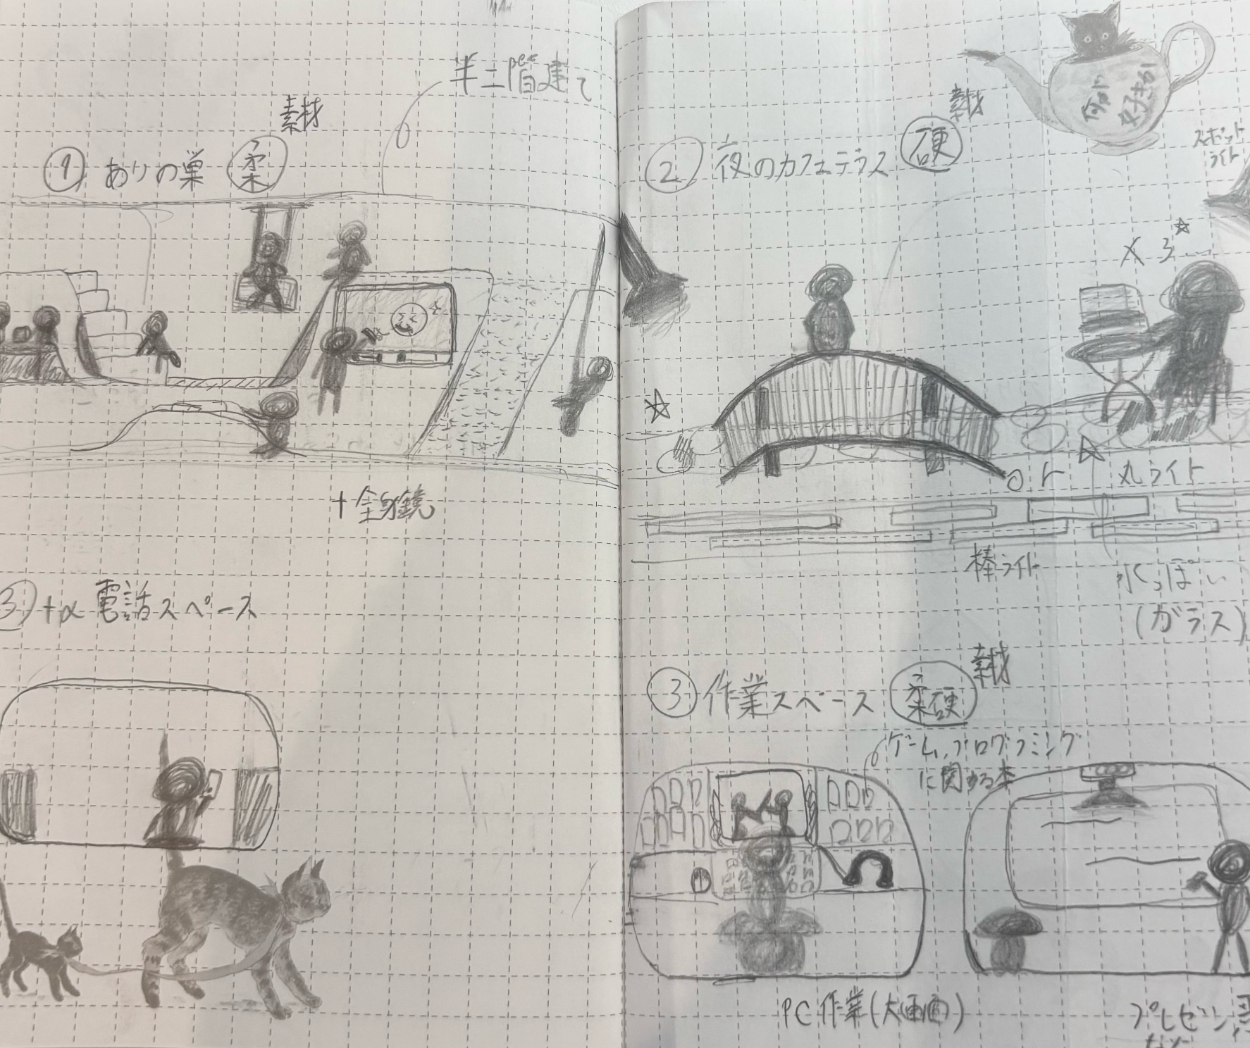 半二階建て
素材
① ありの巣 柔
+全身鏡
③ +α 電話スペース
素材
② 夜のカフェテラス 硬
スポット
ライト
×3
丸ライト
棒ライト
水っぽい
(ガラス)
素材
③ 作業スペース 柔硬
ゲーム、プログラミング
に関する本
PC作業(大画面)
プレゼン
など